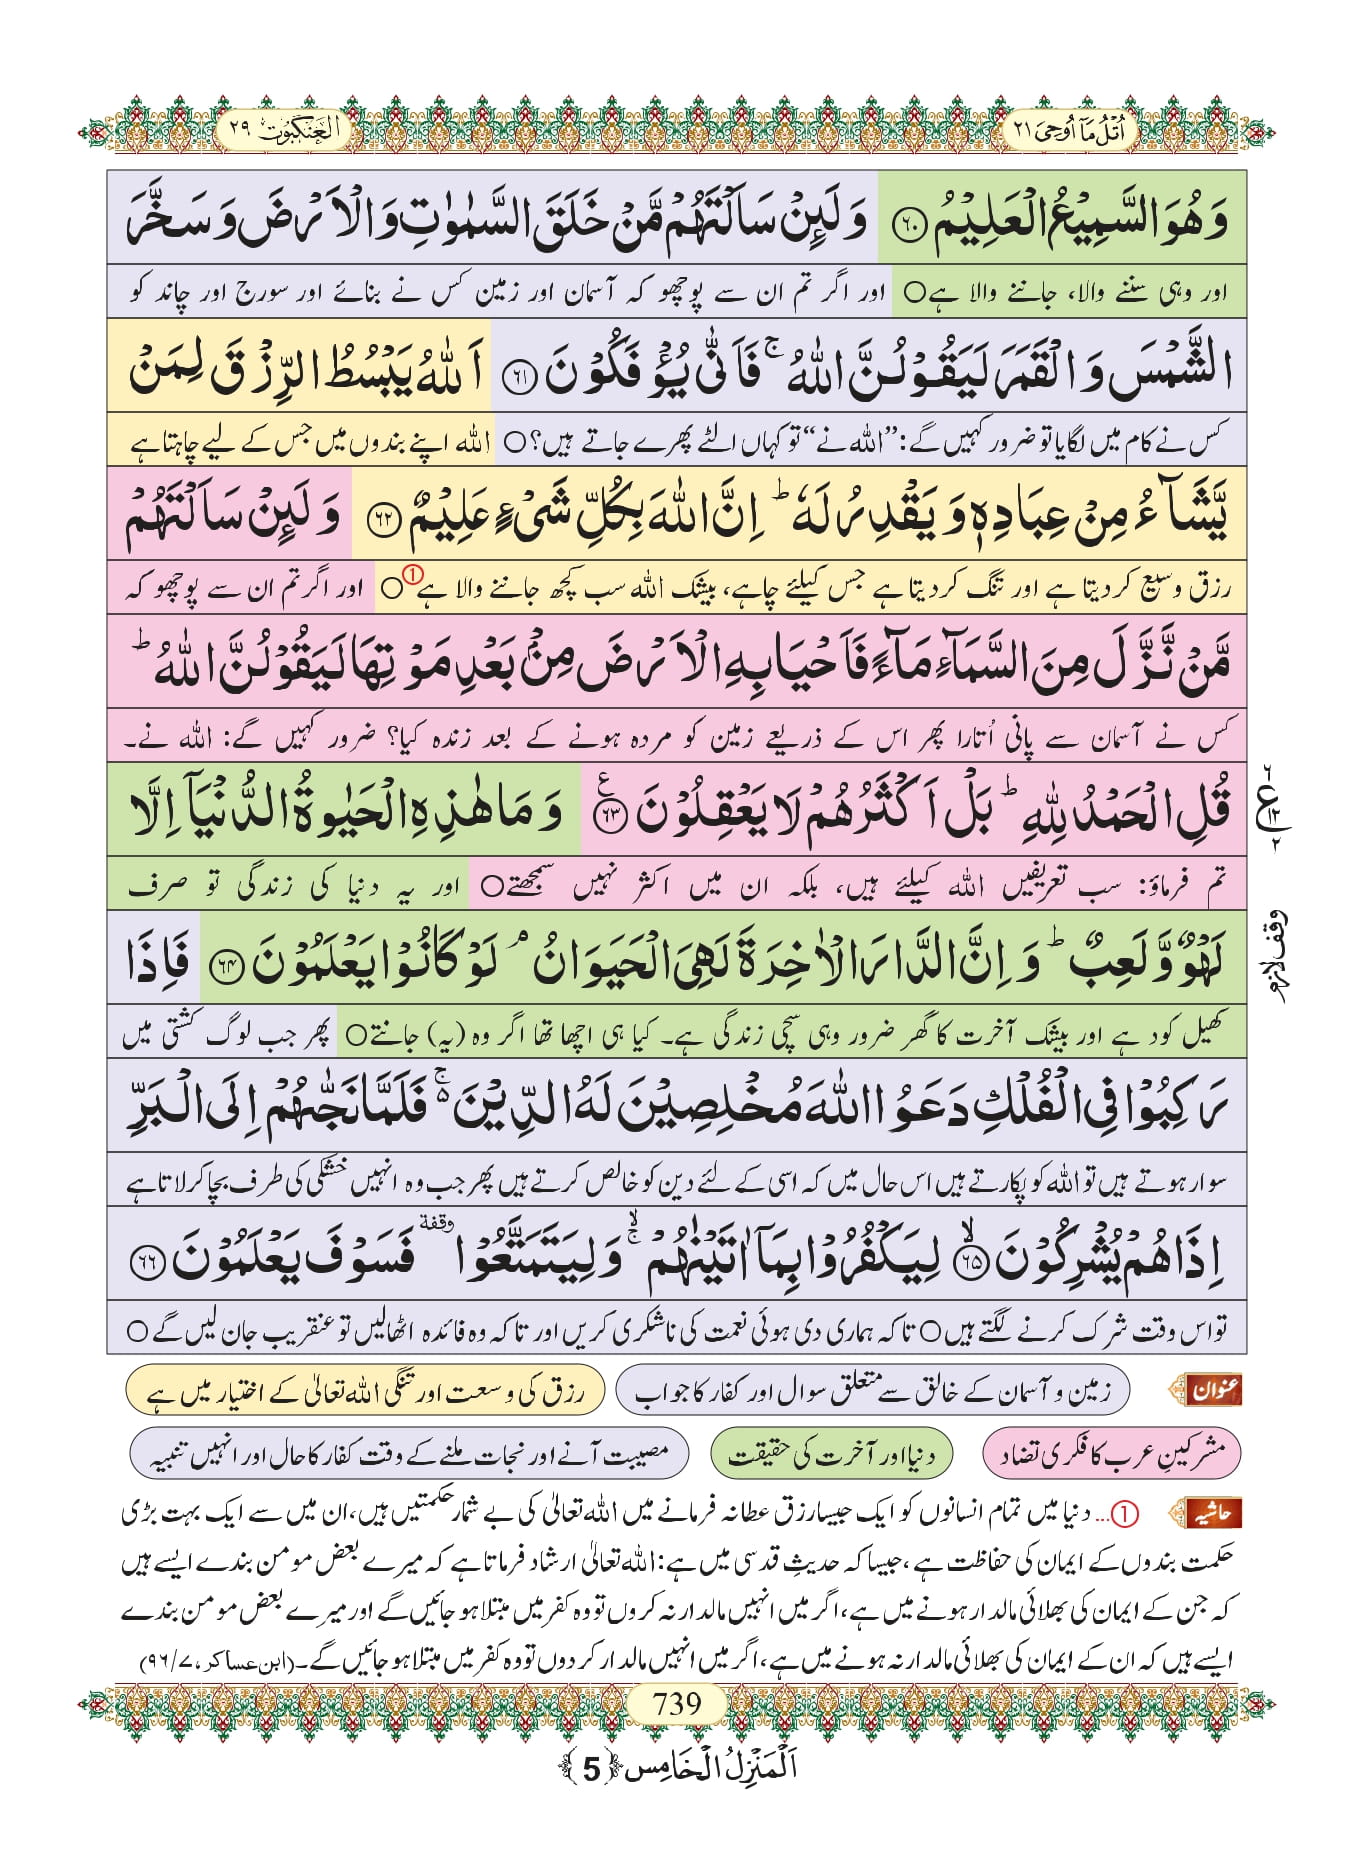 اُتْلُ مَاۤ اُوْحِیَ ۲۱
العنکبوت ۲۹
وَ هُوَ السَّمِیْعُ الْعَلِیْمُ ﴿۶۰﴾ وَ لَىِٕنْ سَاَلْتَهُمْ مَّنْ خَلَقَ السَّمٰوٰتِ وَ الْاَرْضَ وَ سَخَّرَ
اور وہی سننے والا، جاننے والا ہے○ اور اگر تم ان سے پوچھو کہ آسمان اور زمین کس نے بنائے اور سورج اور چاند کو
الشَّمْسَ وَ الْقَمَرَ لَیَقُوْلُنَّ اللّٰهُۚ فَاَنّٰى یُؤْفَكُوْنَ ﴿۶۱﴾ اَللّٰهُ یَبْسُطُ الرِّزْقَ لِمَنْ
کس نے کام میں لگایا تو ضرور کہیں گے: ”اللہ نے“ تو کہاں الٹے پھرے جاتے ہیں؟○ اللہ اپنے بندوں میں جس کے لیے چاہتا ہے
یَّشَآءُ مِنْ عِبَادِهٖ وَ یَقْدِرُ لَهٗؕ اِنَّ اللّٰهَ بِكُلِّ شَیْءٍ عَلِیْمٌ ﴿۶۲﴾ وَ لَىِٕنْ سَاَلْتَهُمْ
رزق وسیع کردیتا ہے اور تنگ کردیتا ہے جس کیلئے چاہے، بیشک اللہ سب کچھ جاننے والا ہے①○ اور اگر تم ان سے پوچھو کہ
مَّنْ نَّزَّلَ مِنَ السَّمَآءِ مَآءً فَاَحْیَا بِهِ الْاَرْضَ مِنْۢ بَعْدِ مَوْتِهَا لَیَقُوْلُنَّ اللّٰهُؕ
کس نے آسمان سے پانی اُتارا پھر اس کے ذریعے زمین کو مردہ ہونے کے بعد زندہ کیا؟ ضرور کہیں گے: اللہ نے۔
قُلِ الْحَمْدُ لِلّٰهِؕ بَلْ اَكْثَرُهُمْ لَا یَعْقِلُوْنَ ﴿۶۳﴾ ع وَ مَا هٰذِهِ الْحَیٰوةُ الدُّنْیَاۤ اِلَّا
ع ۶ ۱۲ ۲
تم فرماؤ: سب تعریفیں اللہ کیلئے ہیں، بلکہ ان میں اکثر نہیں سمجھتے○ اور یہ دنیا کی زندگی تو صرف
لَهْوٌ وَّ لَعِبٌؕ وَ اِنَّ الدَّارَ الْاٰخِرَةَ لَهِیَ الْحَیَوَانُۘ لَوْ كَانُوْا یَعْلَمُوْنَ ﴿۶۴﴾ فَاِذَا
وقف لازم
کھیل کود ہے اور بیشک آخرت کا گھر ضرور وہی سچی زندگی ہے۔ کیا ہی اچھا تھا اگر وہ (یہ) جانتے○ پھر جب لوگ کشتی میں
رَكِبُوْا فِی الْفُلْكِ دَعَوُا اللّٰهَ مُخْلِصِیْنَ لَهُ الدِّیْنَ ۵ۚ فَلَمَّا نَجّٰىهُمْ اِلَى الْبَرِّ
سوار ہوتے ہیں تو اللہ کو پکارتے ہیں اس حال میں کہ اسی کے لئے دین کو خالص کرتے ہیں پھر جب وہ انہیں خشکی کی طرف بچا کر لاتا ہے
اِذَا هُمْ یُشْرِكُوْنَ ﴿۶۵﴾ۙ لِیَكْفُرُوْا بِمَاۤ اٰتَیْنٰهُمْ ۚۙ وَ لِیَتَمَتَّعُوْا وقفة فَسَوْفَ یَعْلَمُوْنَ ﴿۶۶﴾
تو اس وقت شرک کرنے لگتے ہیں○ تاکہ ہماری دی ہوئی نعمت کی ناشکری کریں اور تاکہ وہ فائدہ اٹھالیں تو عنقریب جان لیں گے○
عنوان زمین و آسمان کے خالق سے متعلق سوال اور کفار کا جواب رزق کی وسعت اور تنگی اللہ تعالیٰ کے اختیار میں ہے
مشرکینِ عرب کا فکری تضاد دنیا اور آخرت کی حقیقت مصیبت آنے اور نجات ملنے کے وقت کفار کا حال اور انہیں تنبیہ
حاشیہ ①... دنیا میں تمام انسانوں کو ایک جیسا رزق عطا نہ فرمانے میں اللہ تعالیٰ کی بے شمار حکمتیں ہیں، ان میں سے ایک بہت بڑی
حکمت بندوں کے ایمان کی حفاظت ہے، جیسا کہ حدیثِ قدسی میں ہے: اللہ تعالیٰ ارشاد فرماتا ہے کہ میرے بعض مومن بندے ایسے ہیں
کہ جن کے ایمان کی بھلائی مالدار ہونے میں ہے، اگر میں انہیں مالدار نہ کروں تو وہ کفر میں مبتلا ہو جائیں گے اور میرے بعض مومن بندے
ایسے ہیں کہ ان کے ایمان کی بھلائی مالدار نہ ہونے میں ہے، اگر میں انہیں مالدار کر دوں تو وہ کفر میں مبتلا ہو جائیں گے۔ (ابن عساکر، ۷/۹۶)
739
اَلْمَنْزِلُ الْخَامِس ﴿5﴾